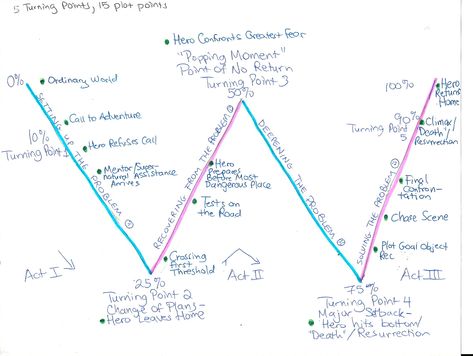 5 Turning Points, 15 plot points
Hero Confronts Greatest Fear
"Popping Moment"
Point of No Return
Turning Point 3
50%
0%
Ordinary World
SETTING UP THE PROBLEM
Call to Adventure
10%
Turning Point 1
Hero Refuses Call
Mentor/Super-
natural Assistance
Arrives
Act I
25%
Turning Point 2
Change of Plans-
Hero Leaves Home
RECOVERING FROM THE PROBLEM
Crossing
First
Threshold
Tests on
the Road
Hero
Prepares
Before Most
Dangerous Place
Act II
DEEPENING THE PROBLEM
75%
Turning Point 4
Major Setback-
Hero hits bottom/
"Death"/Resurrection
SOLVING THE PROBLEM
Plot Goal Object
Rec
Chase Scene
Final
Confron-
tation
90%
Turning Point
5
Climax/
"Death"/
Resurrection
100%
Hero
Returns
Home
Act III